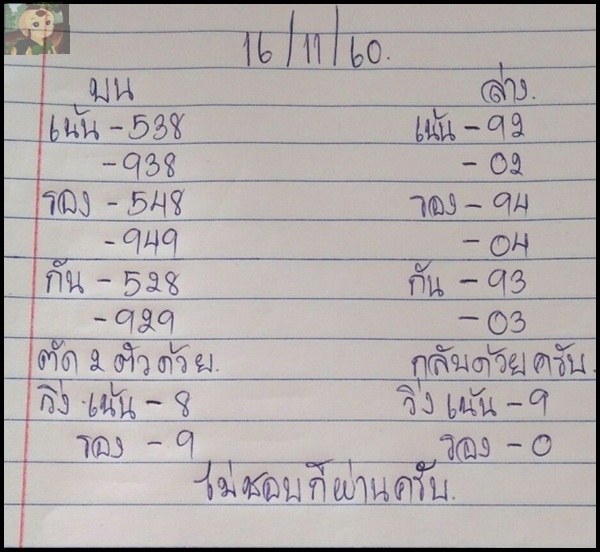 16/11/60.
บน ล่าง.
เน้น - 538 เน้น - 92
- 938 - 02
รอง - 548 รอง - 94
- 949 - 04
กัน - 528 กัน - 93
- 929 - 03
ตัด 2 ตัวด้วย. กลับด้วยครับ.
วิ่ง เน้น - 8 วิ่ง เน้น - 9
รอง - 9 รอง - 0
ไม่ชอบก็ผ่านครับ.